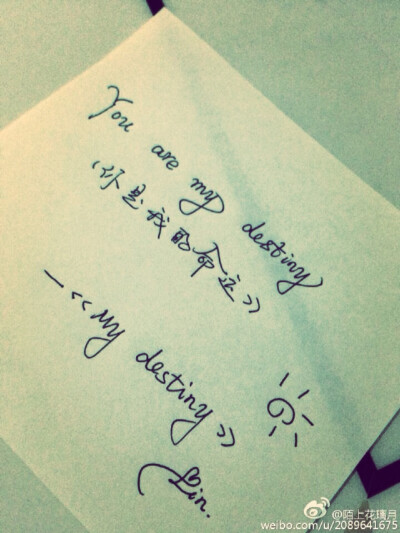 You are my destiny
《你是我的命运》
—《My destiny》
Lin.
@陌上花璃月
weibo.com/u/2089641675